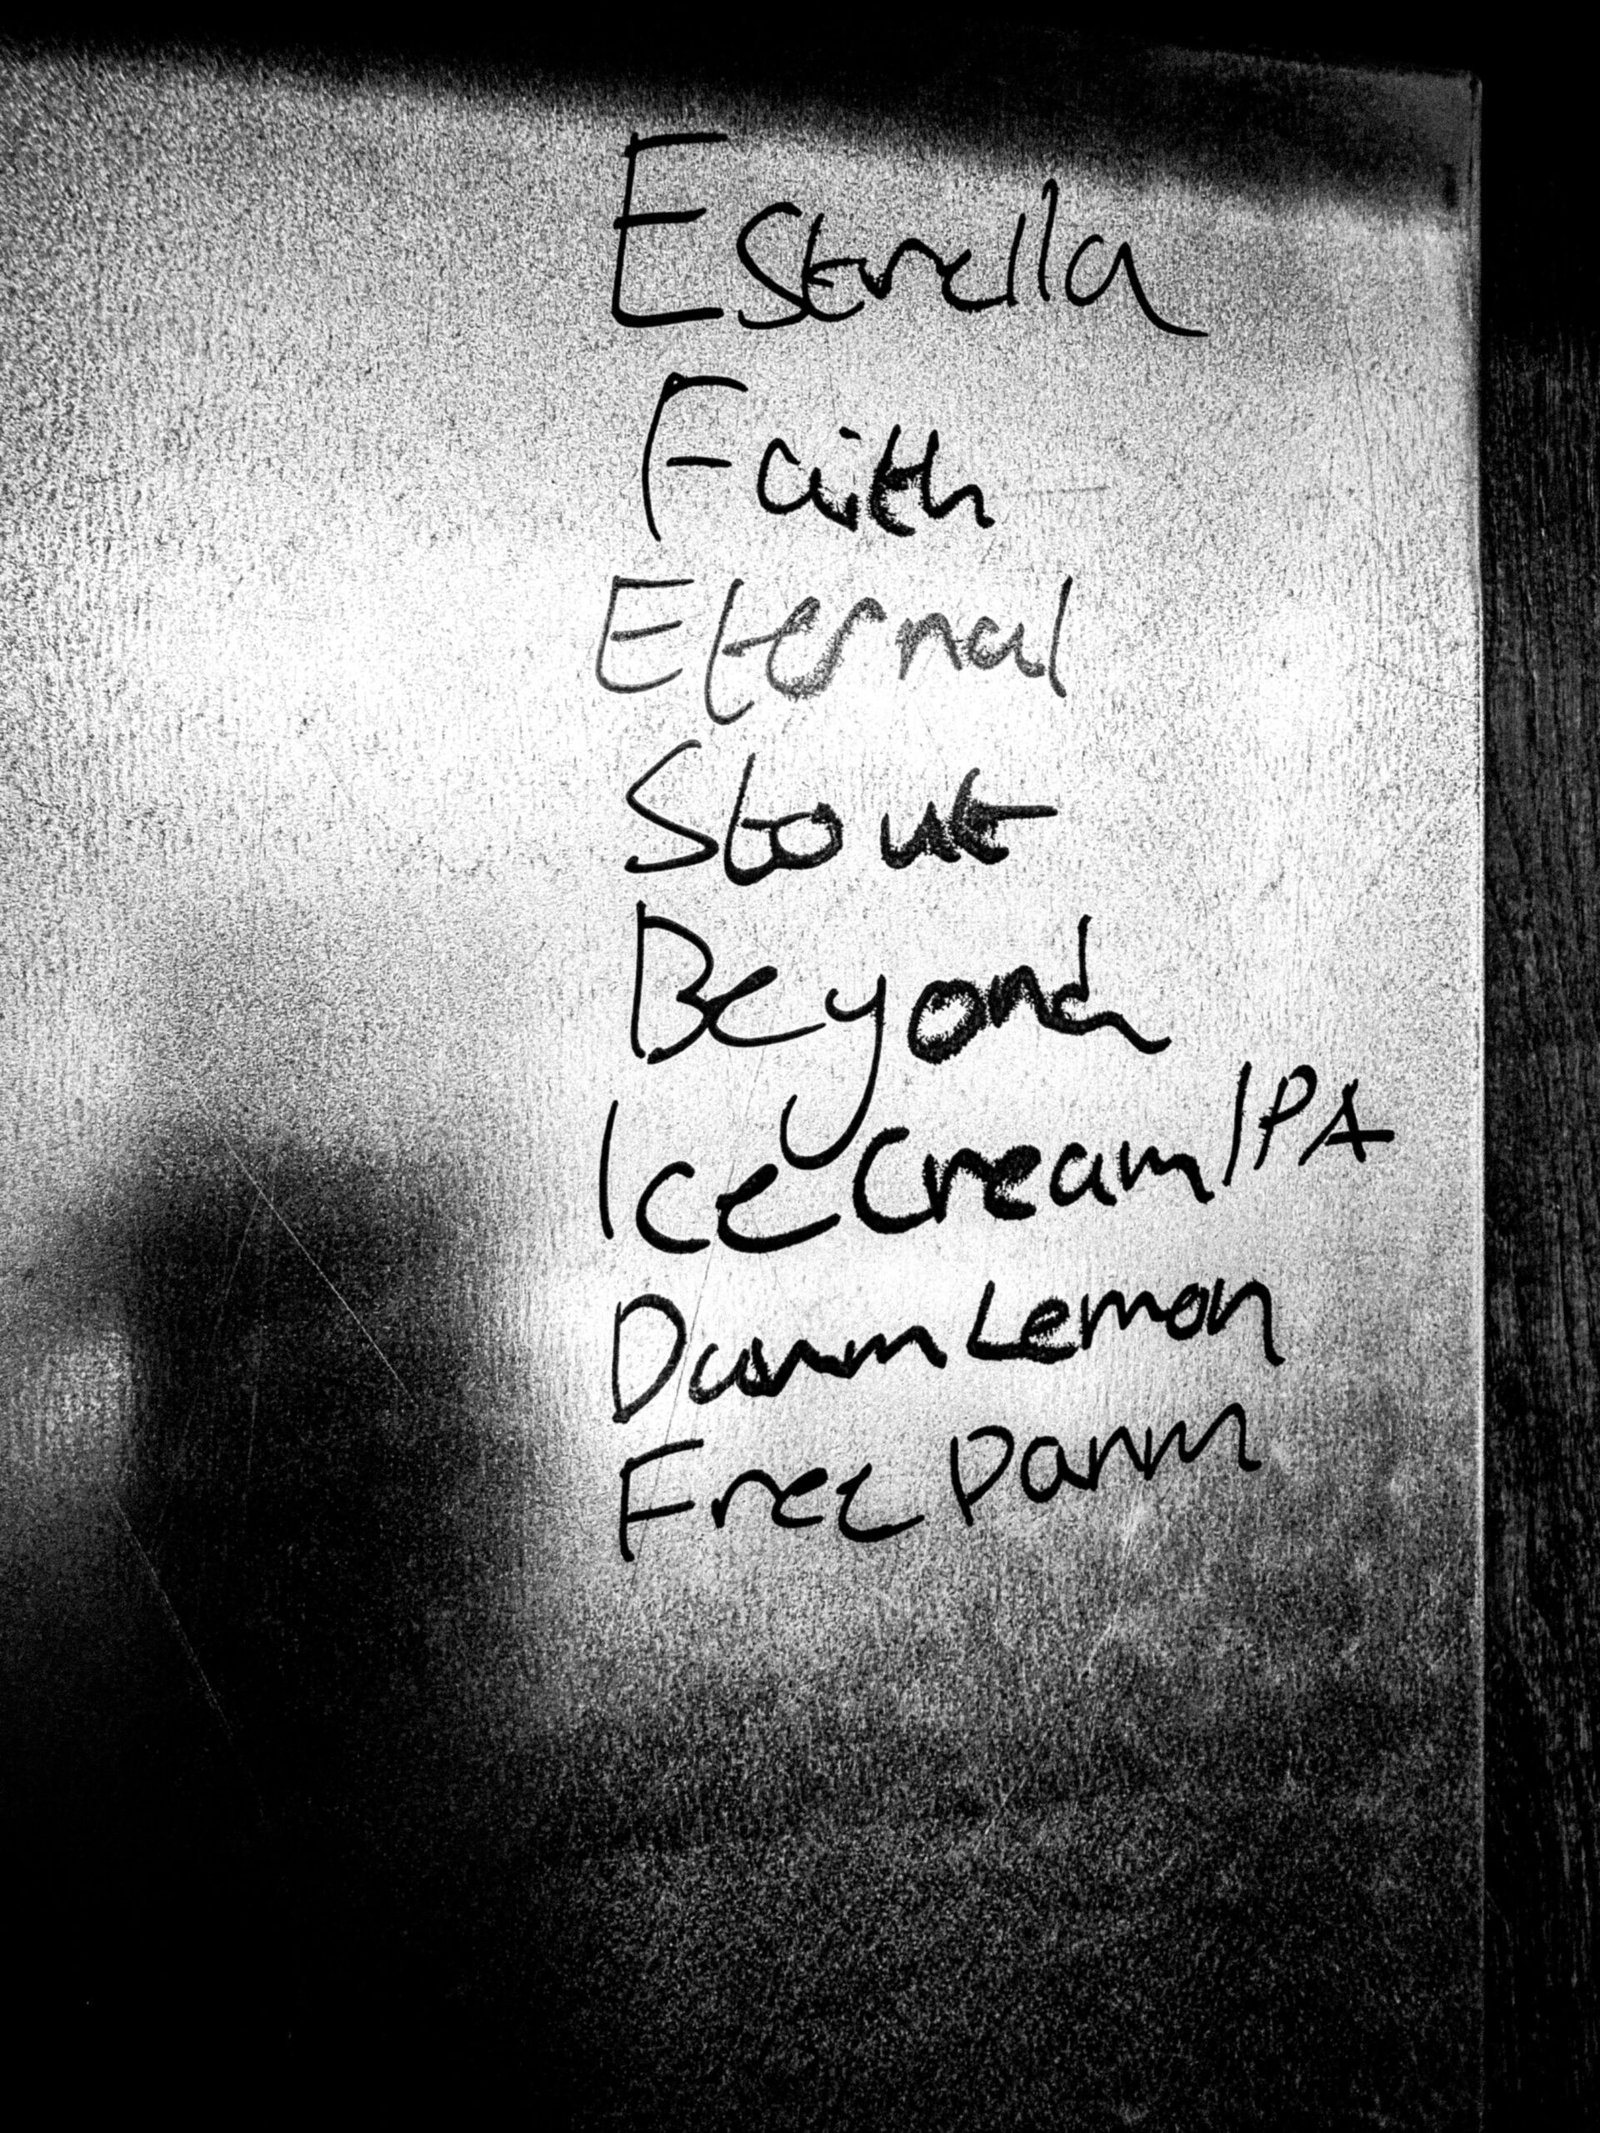 Estrella
Faith
Eternal
Stout
Beyond
Ice Cream IPA
Damm Lemon
Free Damm